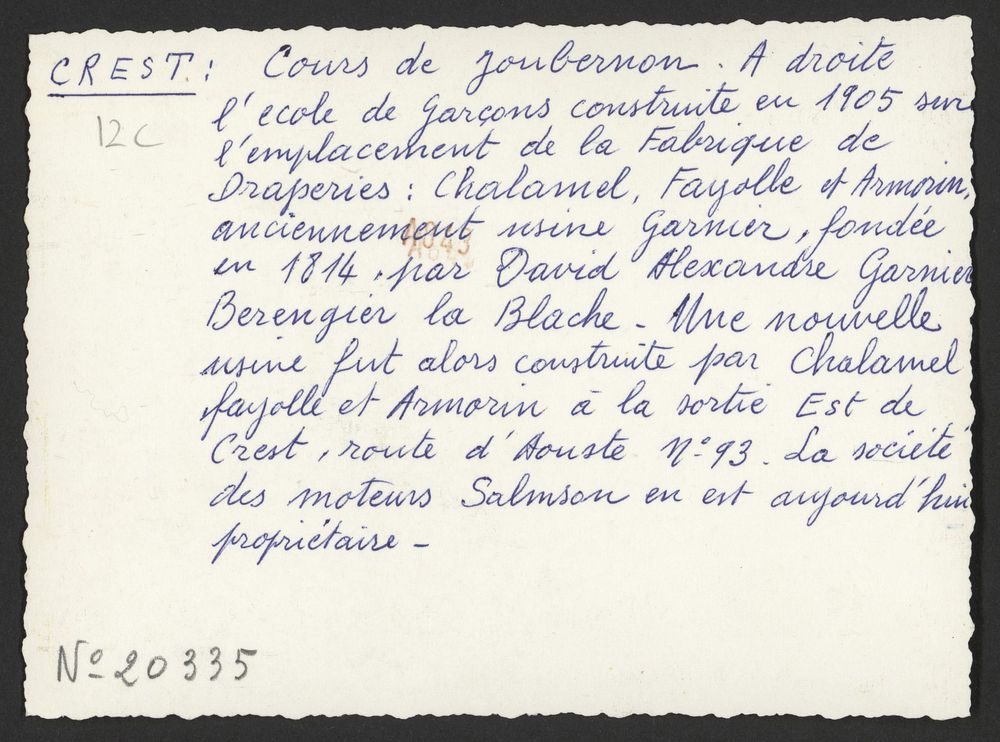 CREST : Cours de Joubernon. A droite
l'ecole de Garçons construite en 1905 sur
12C
l'emplacement de la Fabrique de
Draperies : Chalamel, Fayolle et Armorin,
anciennement usine Garnier, fondée
en 1814, par David Alexandre Garnier
Berengier la Blache - Une nouvelle
usine fut alors construite par Chalamel
fayolle et Armorin à la sortie Est de
Crest, route d'Aouste Nº 93. La société
des moteurs Salmson en est aujourd'hui
propriétaire -
Nº 20335